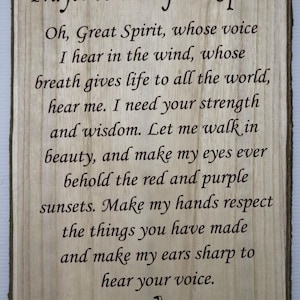 Oh, Great Spirit, whose voice
I hear in the wind, whose
breath gives life to all the world,
hear me. I need your strength
and wisdom. Let me walk in
beauty, and make my eyes ever
behold the red and purple
sunsets. Make my hands respect
the things you have made
and make my ears sharp to
hear your voice.